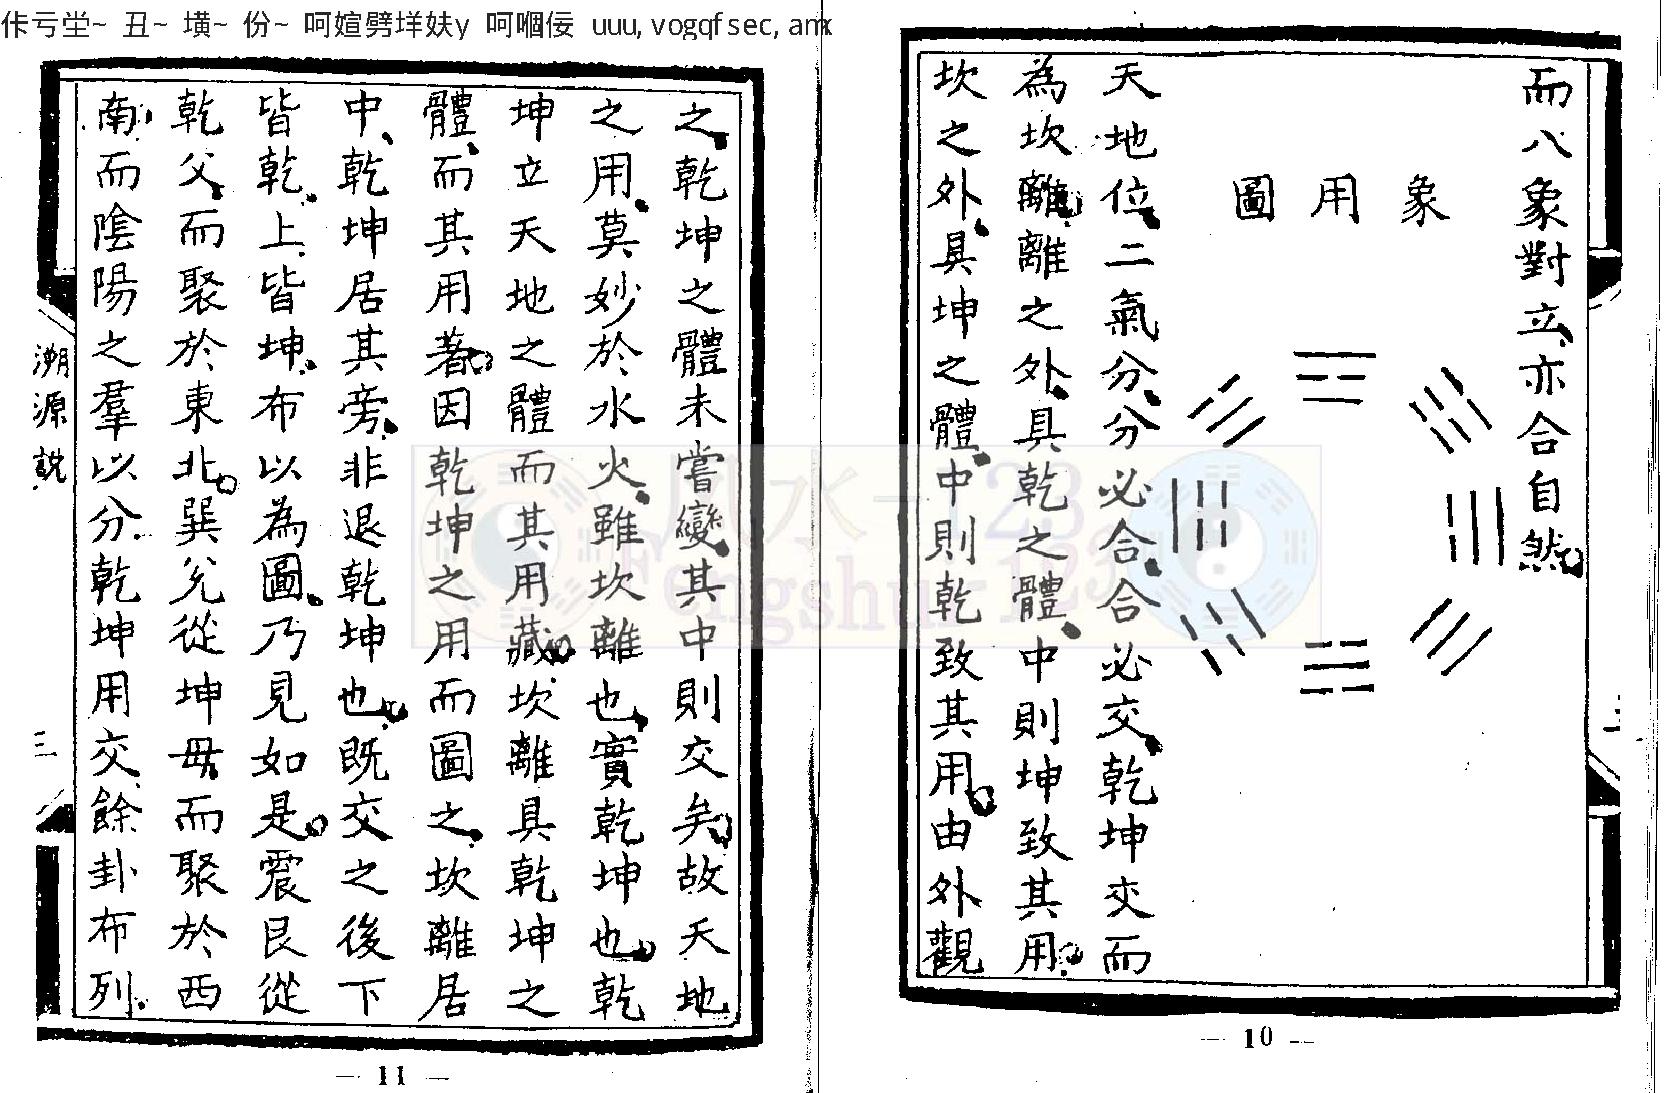 佧亏坣~ 丑~ 墴~ 份~ 呵媗劈垟妋y 呵嘓佞 uuu, vogqfsec, amx
而八象對立、亦合自然。
象用圖
天地位、二氣分、分必合、合必交、乾坤交而
為坎離。離之外、具乾之體、中則坤致其用。
坎之外、具坤之體、中則乾致其用。由外觀
— 10 —
之、乾坤之體未嘗變、其中則交矣。故天地
之用、莫妙於水火、雖坎離也、實乾坤也。乾
坤立天地之體而其用藏。坎離具乾坤之
體、而其用著。因乾坤之用而圖之、坎離居
中、乾坤居其旁、非退乾坤也。既交之後下
皆乾、上皆坤、布以為圖、乃見如是。震艮從
乾父、而聚於東北。巽兌從坤毋而聚於西
南、而陰陽之羣以分、乾坤用交、餘卦布列、
溯源說
三
— 11 —
風水-123
Fengshui-123